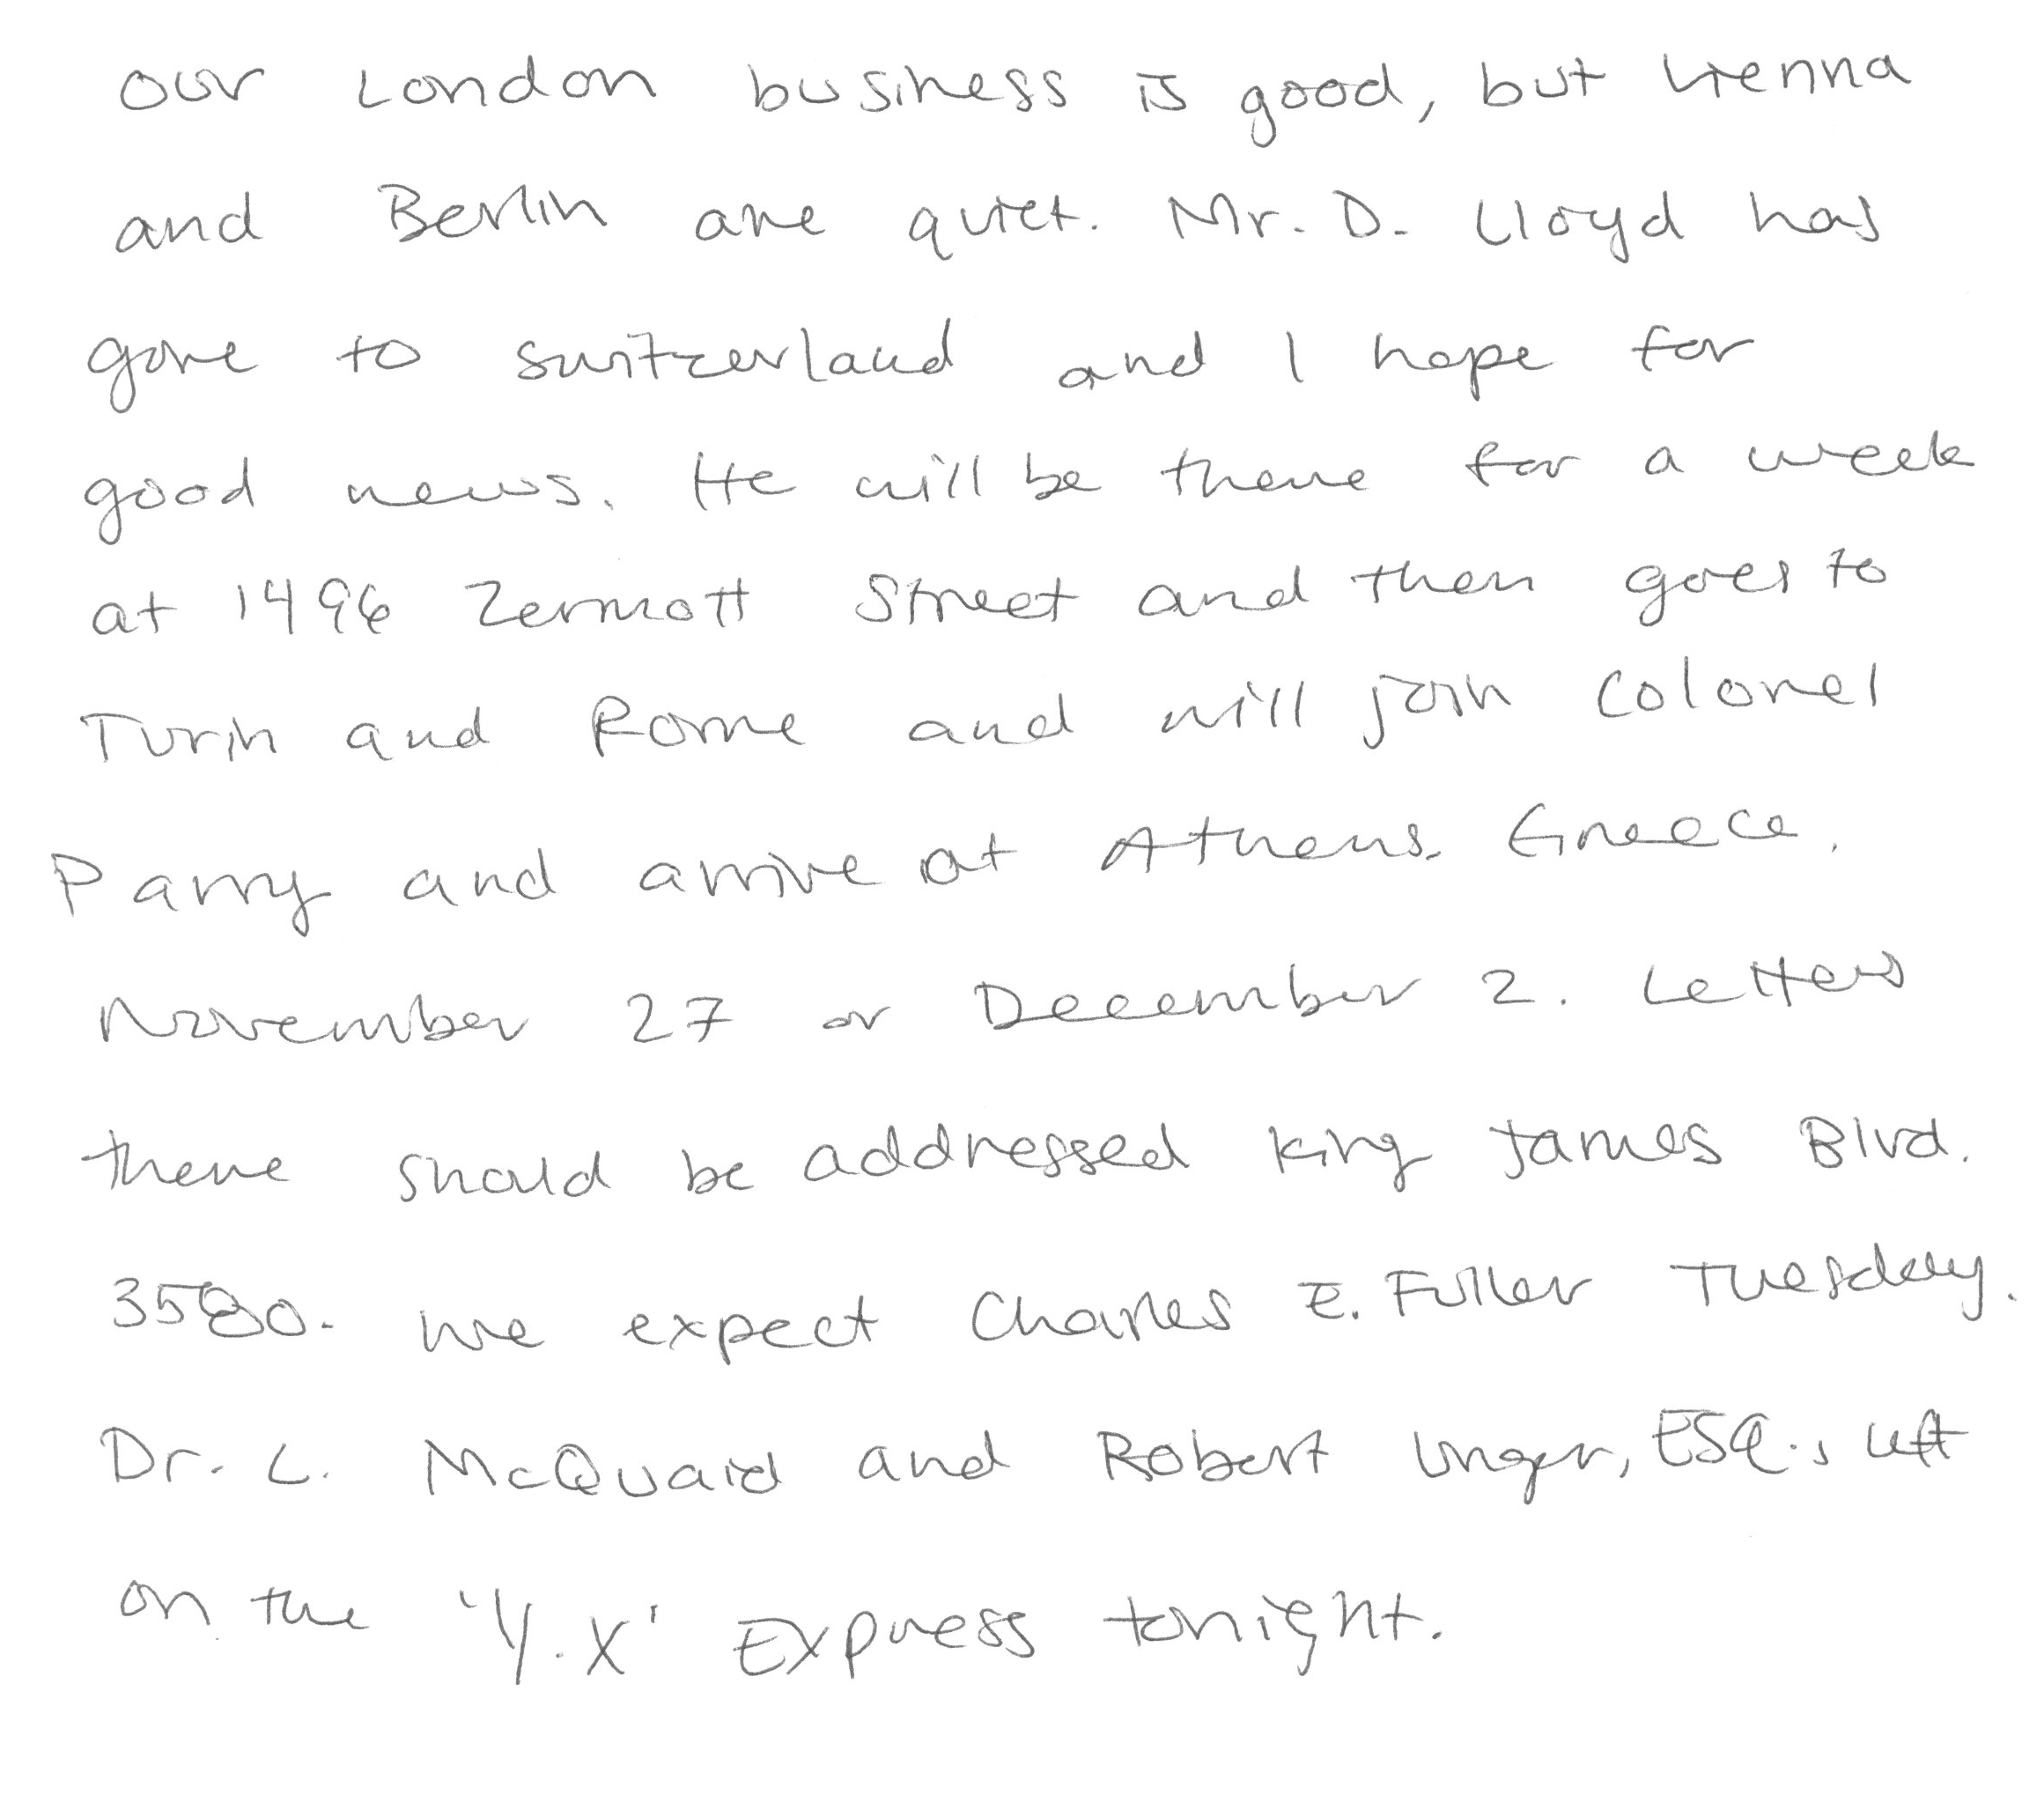 Our London business is good, but Vienna
and Berlin are quiet. Mr. D. Lloyd has
gone to Switzerland and I hope for
good news. He will be there for a week
at 1496 Zermott Street and then goes to
Turin and Rome and will join Colonel
Parry and arrive at Athens. Greece,
November 27 or December 2. Letters
there should be addressed King James Blvd.
3580. We expect Charles E. Fuller Tuesday.
Dr. L. McQuaid and Robert Unger, ESQ., left
on the 'Y.X' Express tonight.